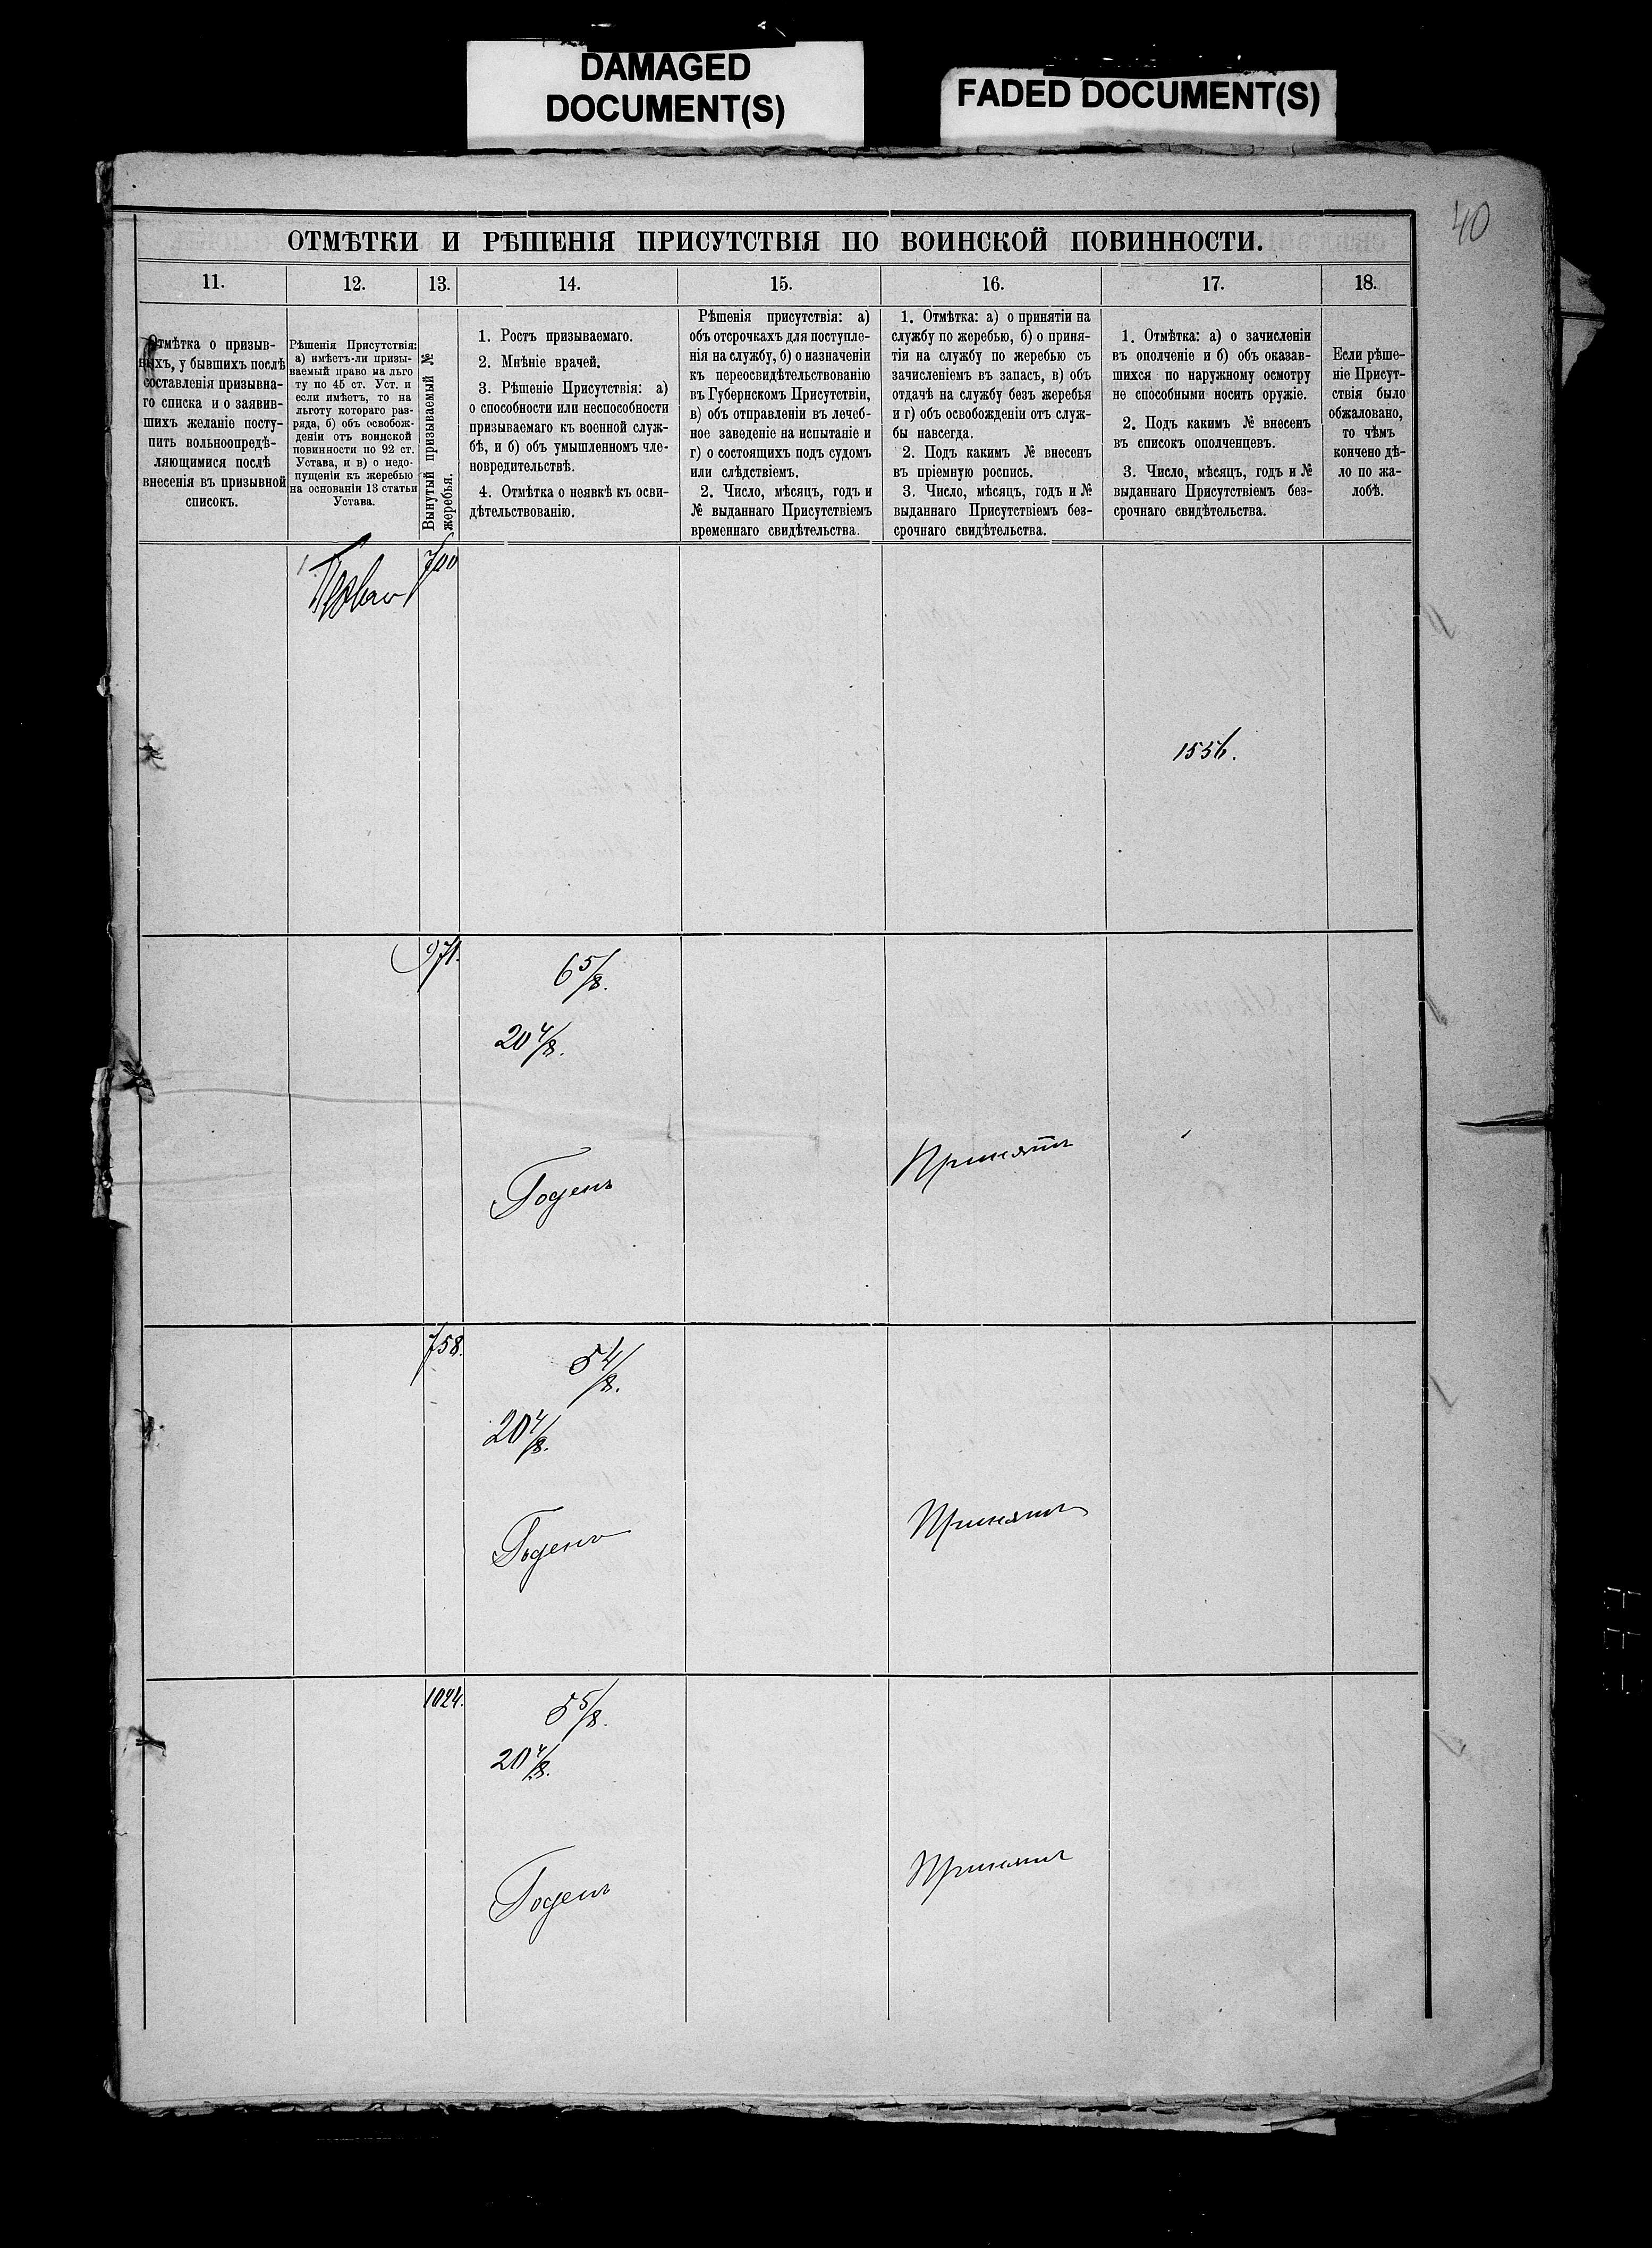 DAMAGED
DOCUMENT(S)
FADED DOCUMENT(S)
40
ОТМѢТКИ И РѢШЕНІЯ ПРИСУТСТВІЯ ПО ВОИНСКОЙ ПОВИННОСТИ.
11.
12.
13.
14.
15.
16.
17.
18.
Отмѣтка о призыв-
ныхъ, у бывшихъ послѣ
составленія призывна-
го списка и о заявив-
шихъ желаніе посту-
пить вольноопредѣ-
ляющимися послѣ
внесенія въ призывной
списокъ.
Рѣшенія Присутствія:
а) имѣетъ-ли призы-
ваемый право на льго
ту по 45 ст. Уст. и
если имѣетъ, то на
льготу котораго раз-
ряда, б) объ освобож-
деніи отъ воинской
повинности по 92 ст.
Устава, и в) о недо-
пущеніи къ жеребью
на основаніи 13 статьи
Устава.
Вынутый призываемый №
жеребья.
1. Ростъ призываемаго.
2. Мнѣніе врачей.
3. Рѣшеніе Присутствія: а)
о способности или неспособности
призываемаго къ военной служ-
бѣ, и б) объ умышленномъ чле-
новредительствѣ.
4. Отмѣтка о неявкѣ къ осви-
дѣтельствованію.
Рѣшенія присутствія: а)
объ отсрочкахъ для поступле-
нія на службу, б) о назначеніи
къ переосвидѣтельствованію
въ Губернскомъ Присутствіи,
в) объ отправленіи въ лечеб-
ное заведеніе на испытаніе и
г) о состоящихъ подъ судомъ
или слѣдствіемъ.
2. Число, мѣсяцъ, годъ и
№ выданнаго Присутствіемъ
временнаго свидѣтельства.
1. Отмѣтка: а) о принятіи на
службу по жеребью, б) о приня-
тіи на службу по жеребью съ
зачисленіемъ въ запасъ, в) объ
отдачѣ на службу безъ жеребья
и г) объ освобожденіи отъ служ-
бы навсегда.
2. Подъ какимъ № внесенъ
въ пріемную роспись.
3. Число, мѣсяцъ, годъ и №
выданнаго Присутствіемъ без-
срочнаго свидѣтельства.
1. Отмѣтка: а) о зачисленіи
въ ополченіе и б) объ оказав-
шихся по наружному осмотру
не способными носить оружіе.
2. Подъ какимъ № внесенъ
въ списокъ ополченцевъ.
3. Число, мѣсяцъ, годъ и №
выданнаго Присутствіемъ без-
срочнаго свидѣтельства.
Если рѣше-
ніе Присут-
ствія было
обжаловано,
то чѣмъ
кончено дѣ-
ло по жа-
лобѣ.
700
1556.
971.
6 5/8.
20 4/8.
Годенъ
Принятъ
758.
5 4/8.
20 4/8.
Годенъ
Принятъ
1024.
5 5/8.
20 4/8.
Годенъ
Принятъ